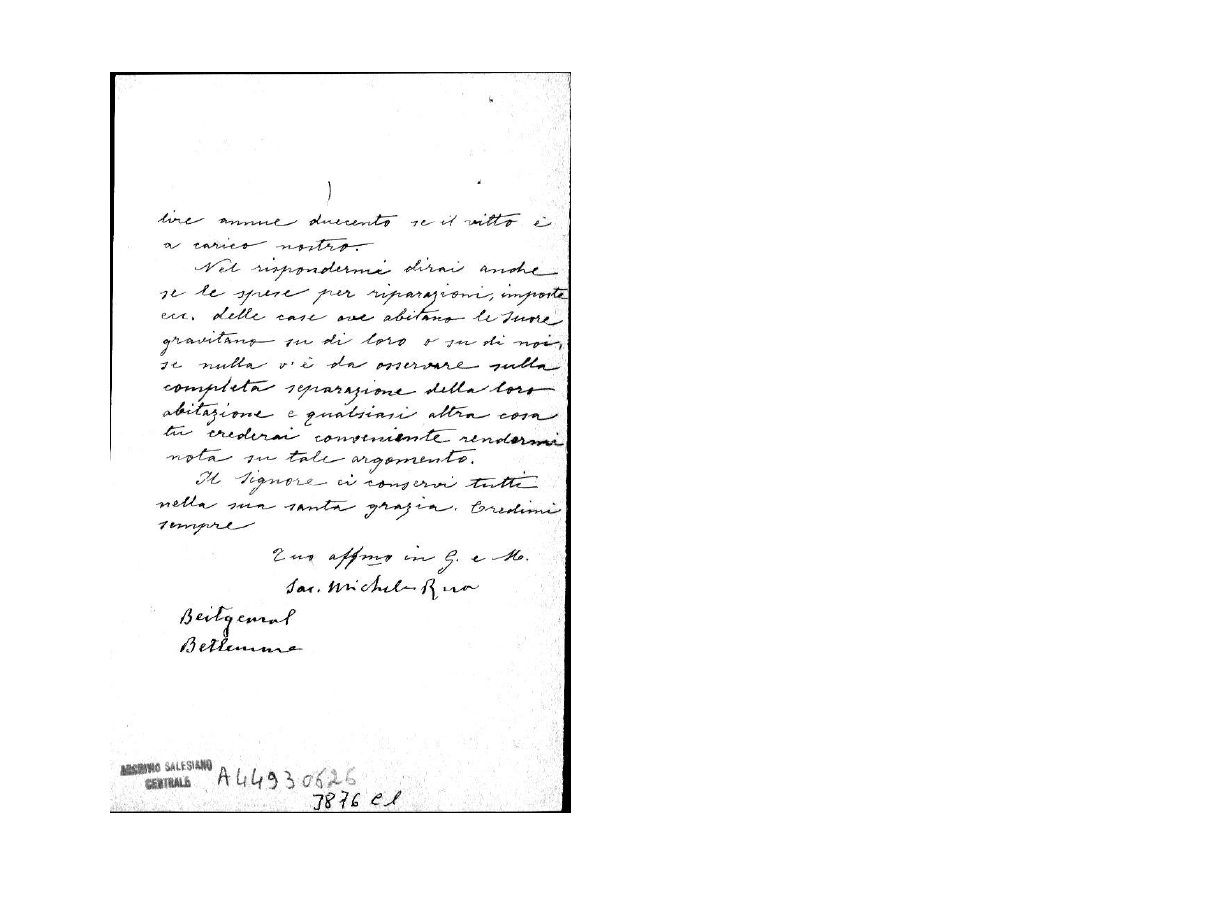 lire annue duecento se il vitto è
a carico nostro.
Nel rispondermi dirai anche
se le spese per riparazioni, imposte
ecc. delle case ove abitano le Suore
gravitano su di loro o su di noi,
se nulla v'è da osservare sulla
completa separazione della loro
abitazione e qualsiasi altra cosa
tu crederai conveniente rendermi
nota su tale argomento.
Il Signore ci conservi tutti
nella sua santa grazia. Credimi
sempre
Tuo affmo in G. e M.
Sac. Michele Rua
Beitgemal
Betlemme
ARCHIVIO SALESIANO
CENTRALE
A44930626
3876 C1